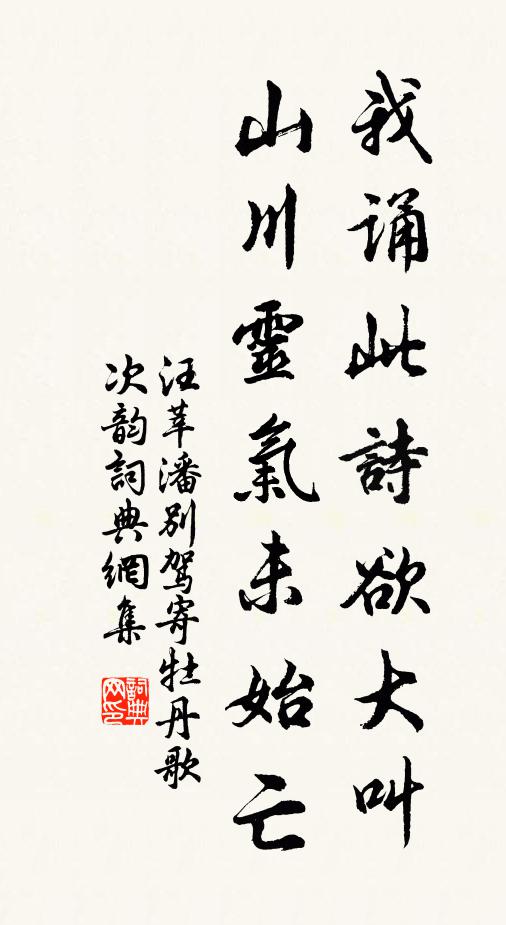 我诵此詩欲大叫
山川靈氣未始亡
汪莘潘别驾寄牡丹歌
次韵詞典網集
詞典
网印